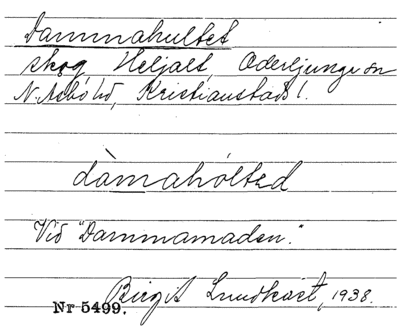 Dammahultet
skog, Heljalt, Oderljunga sn
N. Åsbo hd, Kristianstads l.
dàmahóltəd
Vid "Dammamaden".
Birgit Lundkvist, 1938.
Nr 5499.